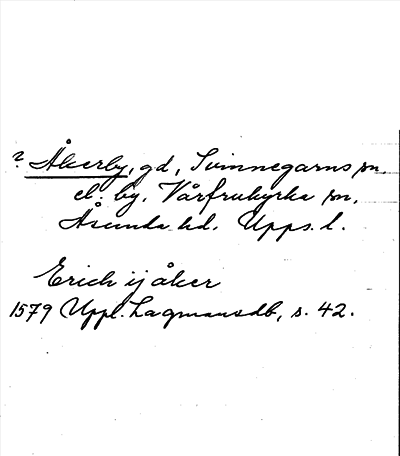 ? Åkerby, gd, Svinnegarns sn.
el. by, Vårfrukyrka sn.
Åsunda hd. Upps. l.
Erich ij åker
1579 Uppl. Lagmansdb, s. 42.